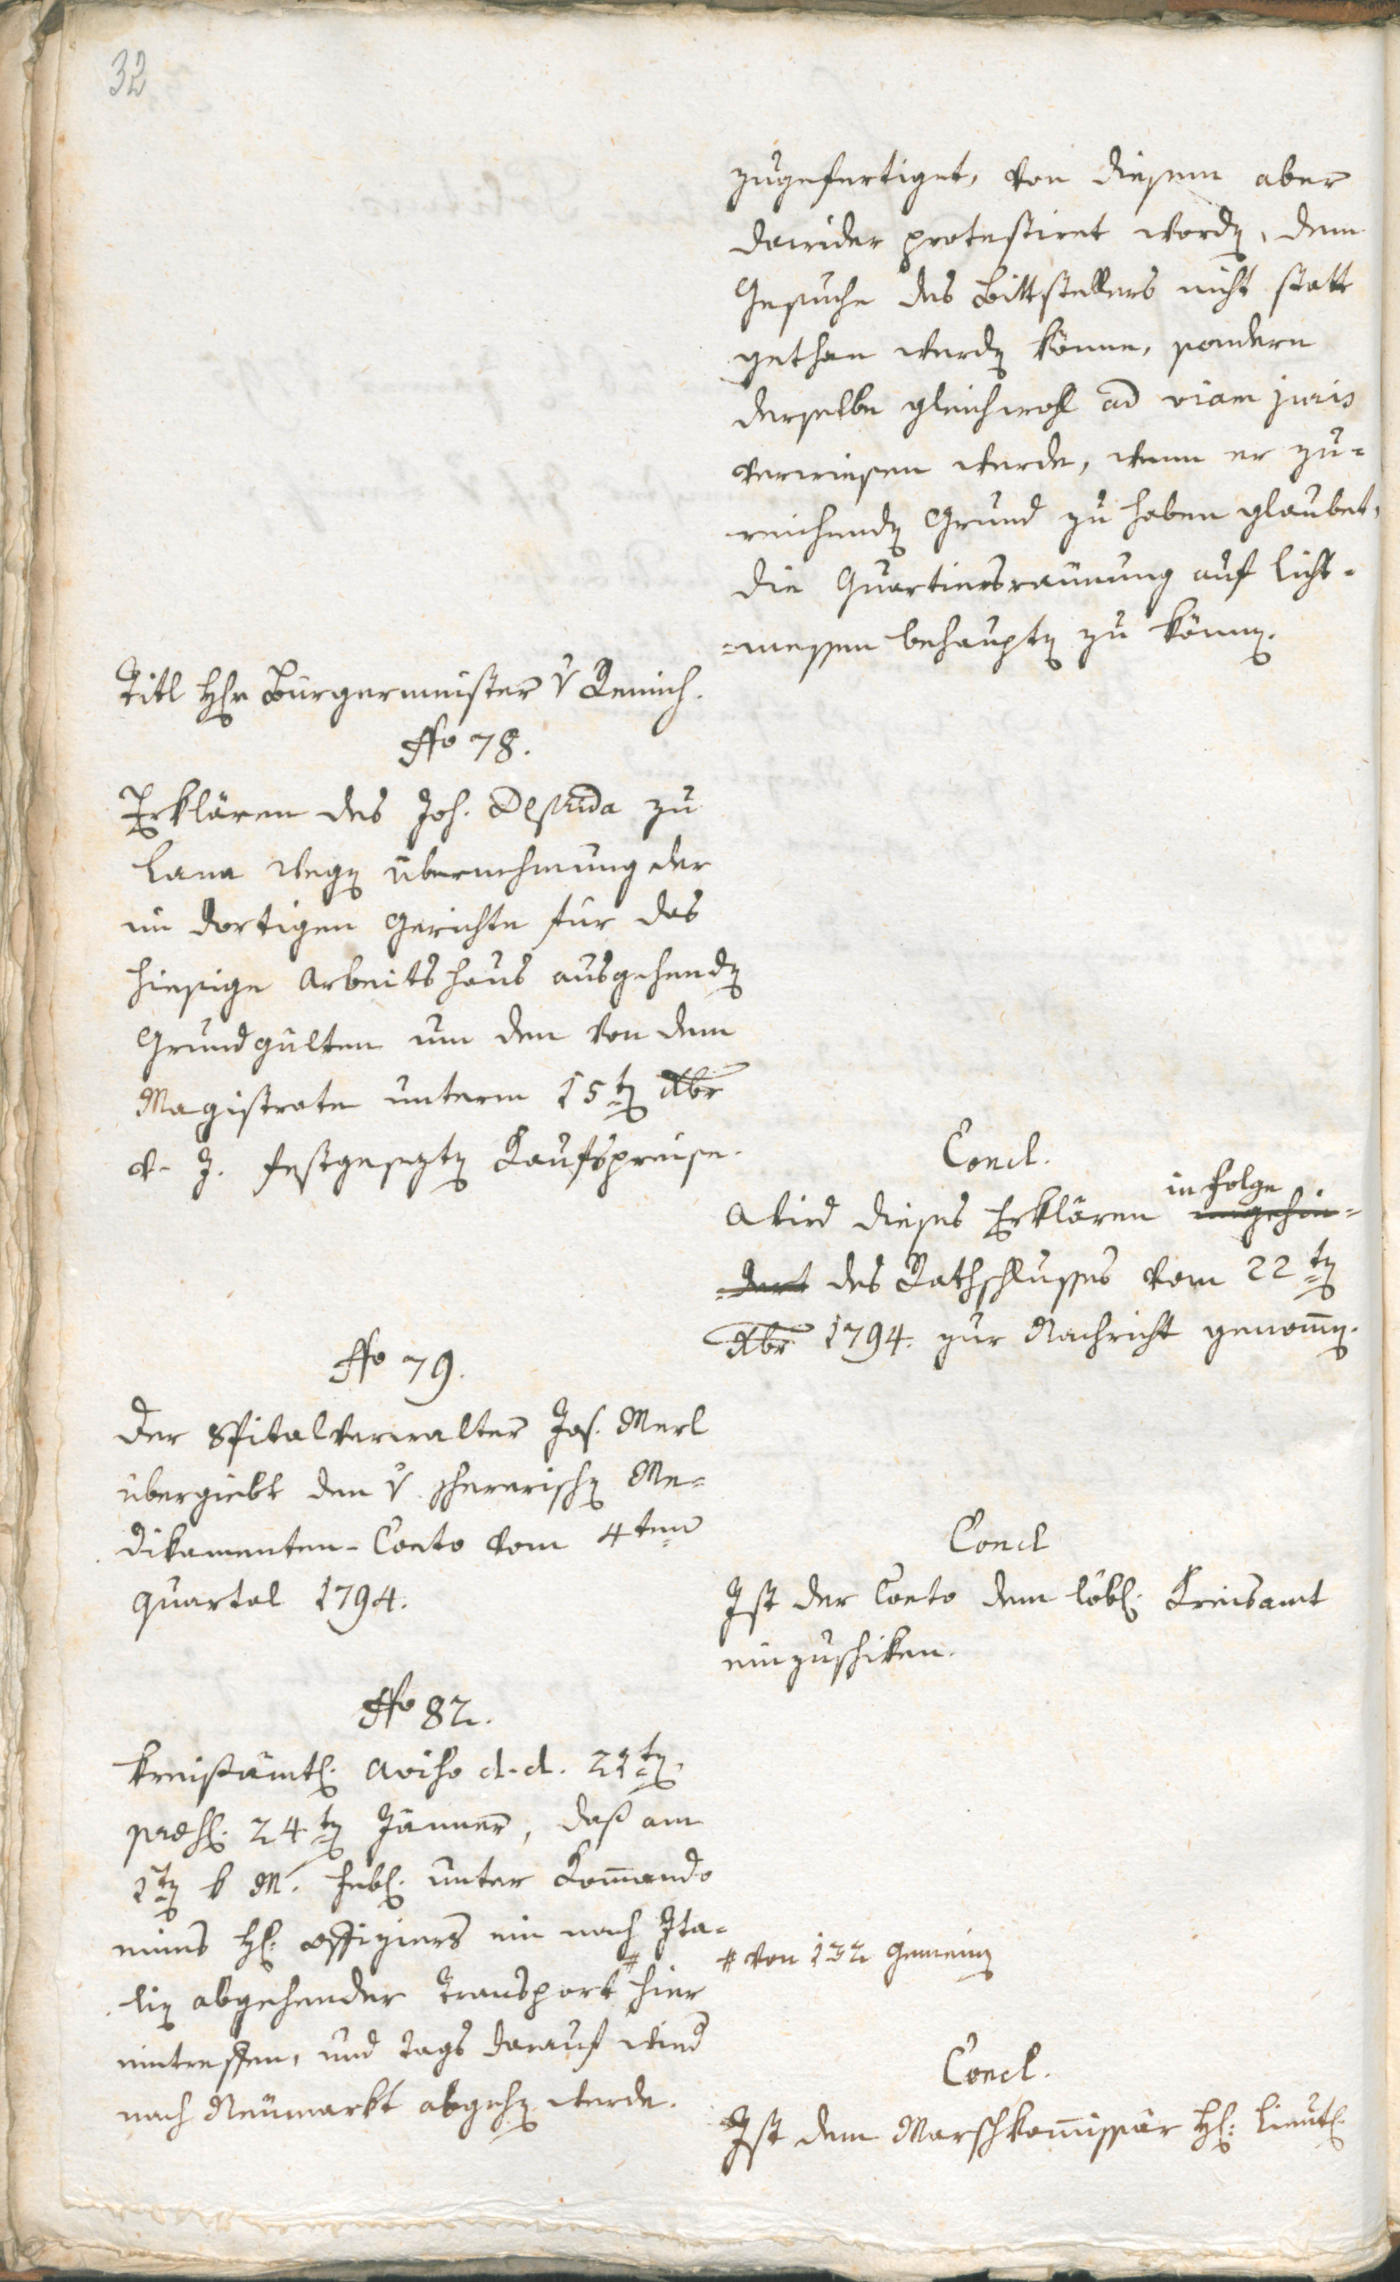 32
zugefertiget, von diesem aber
dawider protestiret word, dem
Gesuche des Bittstellers nicht statt
gethan werd könne, sondern
derselbe gleichwohl ad viam juris
verwiesen werde, wenn er zu=
reichend Grund zu haben glaubet,
die Quartiersräumung auf Licht=
=messen behaupt zu könn.
Titl H Bürgermeister v Remich.
No 78.
Erklären des Joh. zu
Lana weg übernehmung der
im dortigen Gerichte für das
hiesige Arbeitshaus ausgehend
Grundgülten um den von dem
Magistrate unterm 15t Xbr
v. J. festgesezt Kaufspreise.
Concl.
Wird dieses Erklären in Folge ungehin=
=dert des Rathschlusses vom 22t
Xbr 1794. zur Nachricht genom̅.
No 79.
Der Spitalverwalter Jos. Merl
übergiebt den v. Me=
dikamenten-Conto vom 4ten
Quartal 1794.
Concl
Ist der Conto dem löbl. Kreisamt
einzuschiken.
No 82.
Kreisämtl. Aviso d. d. 22t
praes. 24t Jänner, daß am
1t k M. Febl. unter Kom̅ando
eines H. Offiziers ein nach Ita=
li abgehender Transport # hier
eintreffen, und Tags darauf wied
nach Neumarkt abgeh werde.
# von 132 Gemein
Concl.
Ist dem Marschkom̅issär H: Lieut.